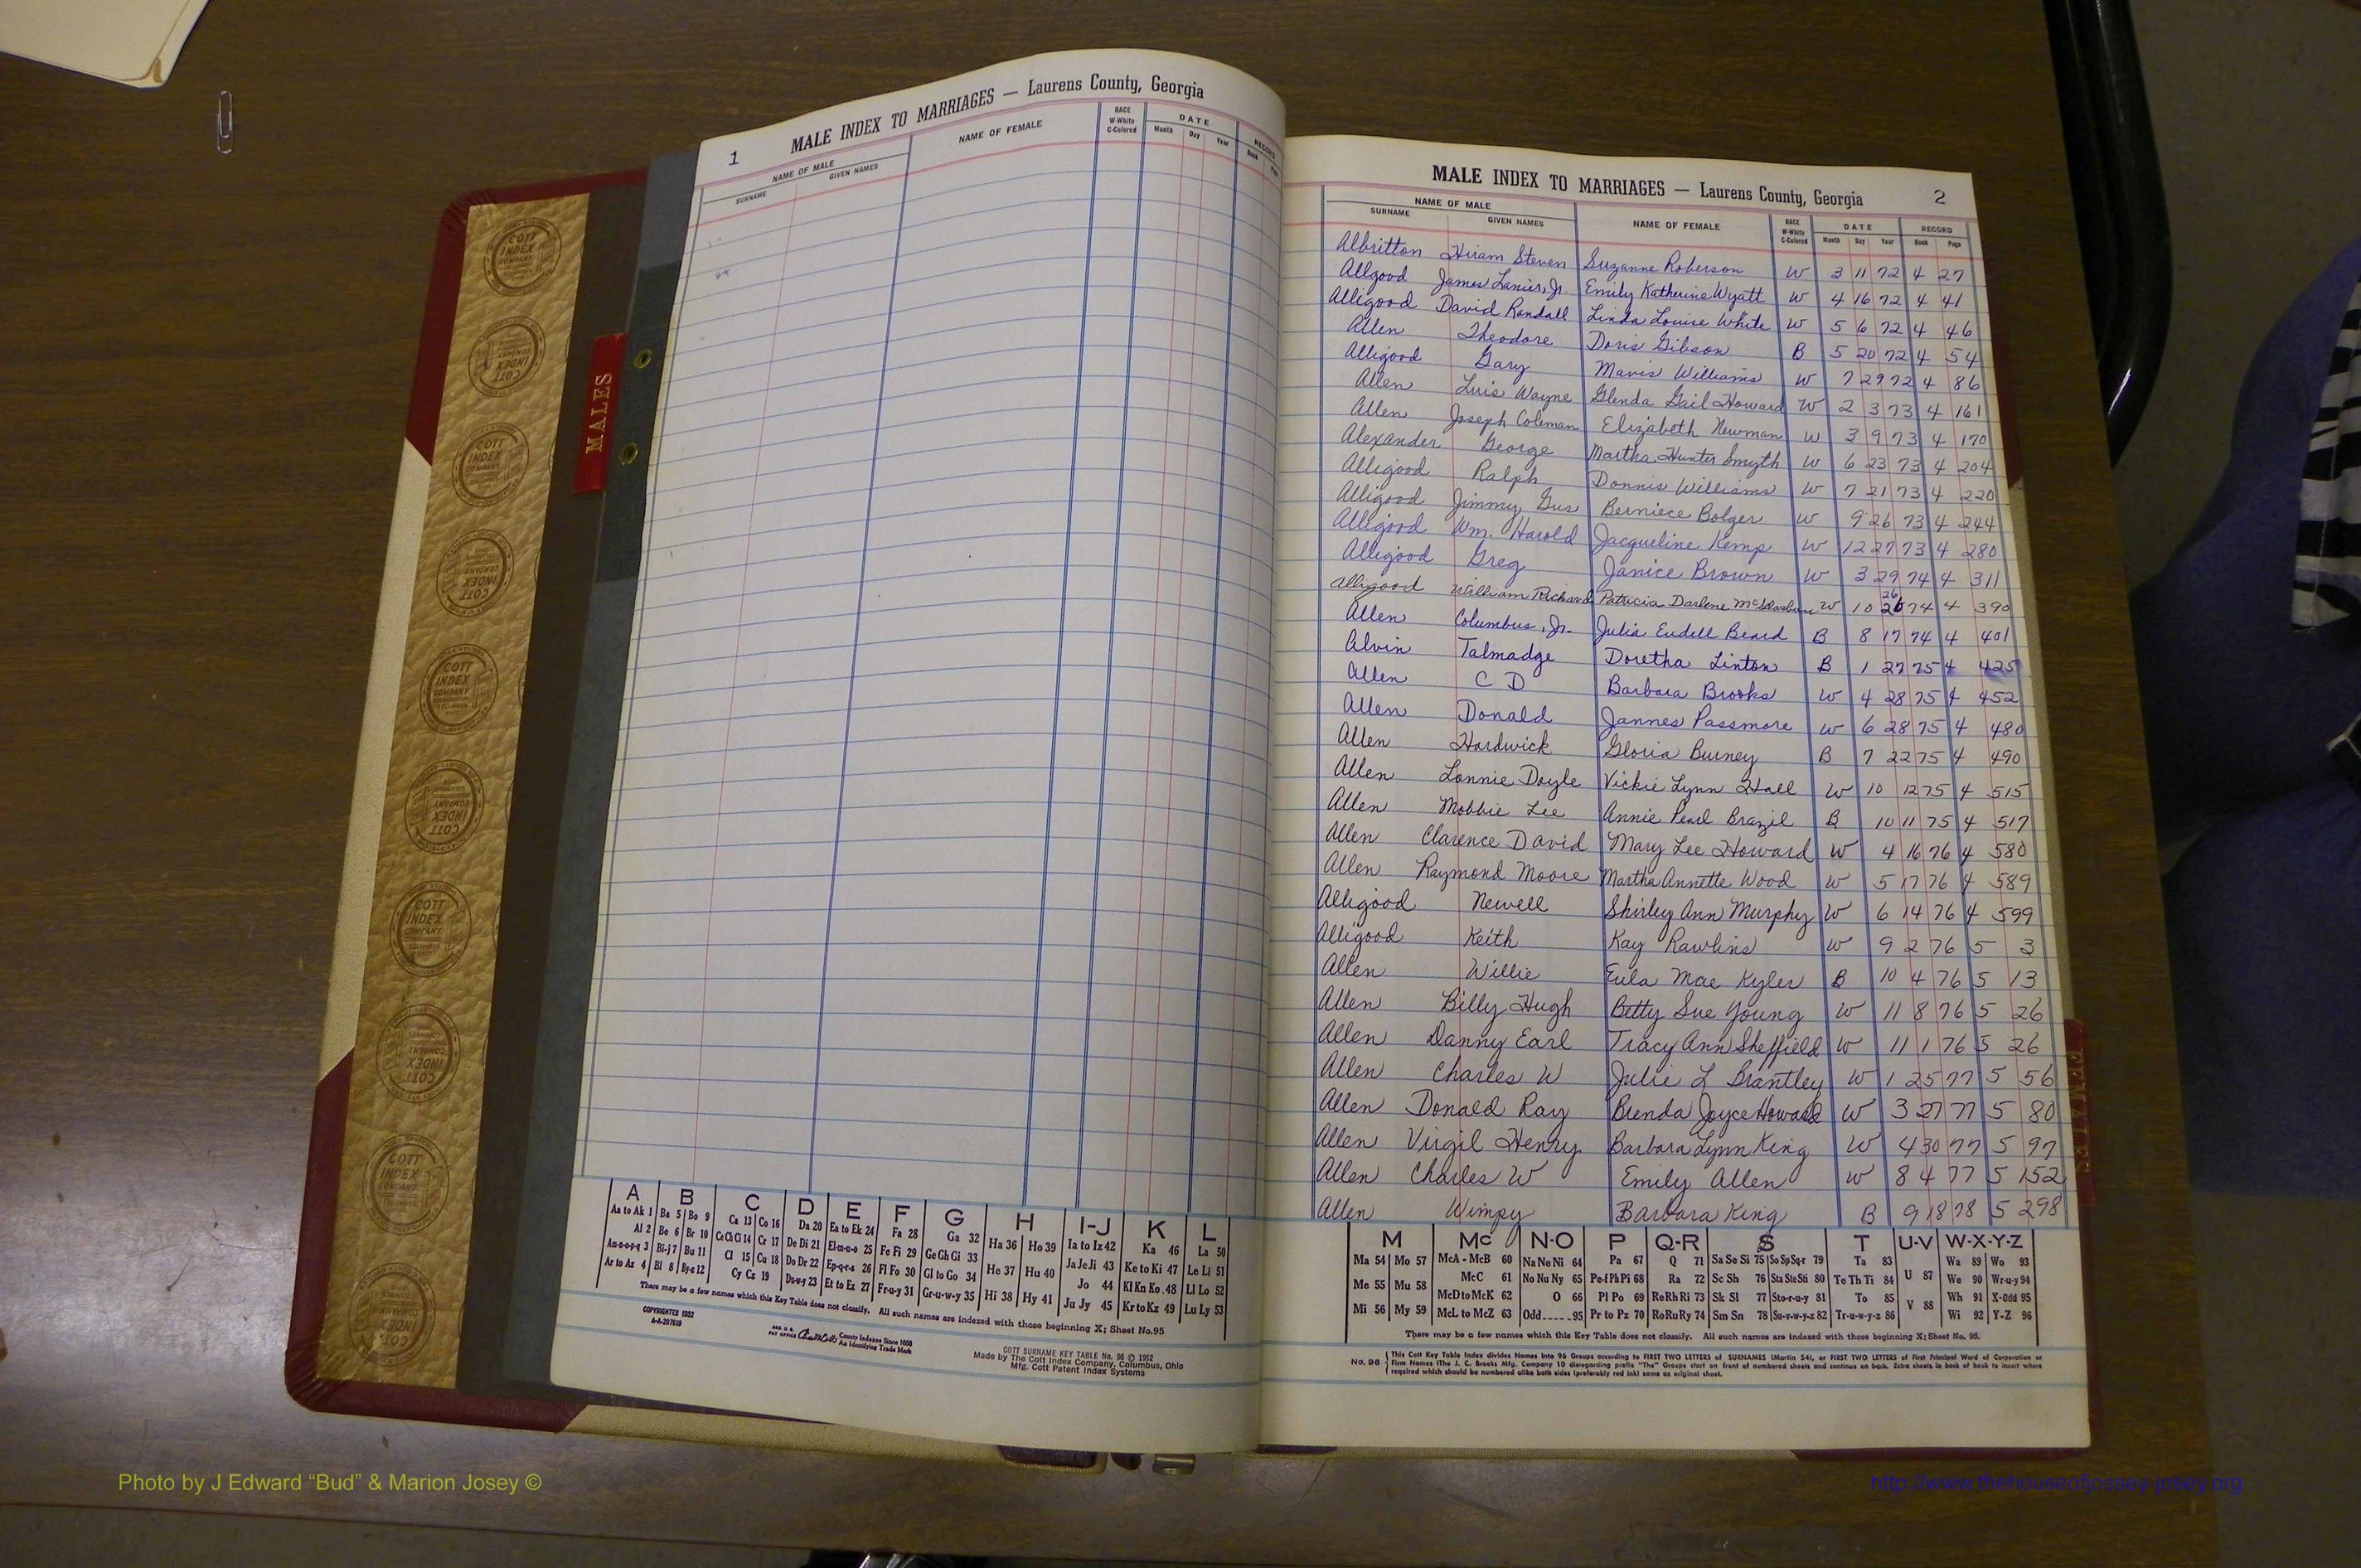 MALES
COTT INDEX COMPANY
1 MALE INDEX TO MARRIAGES — Laurens County, Georgia
NAME OF MALE NAME OF FEMALE RACE W-White C-Colored DATE RECORD
SURNAME GIVEN NAMES Month Day Year Book Page
A B C D E F G H I-J K L
Aa to Ak 1 Ba 5 Bo 9 Ca 13 Co 16 Da 20 Ea to Ek 24 Fa 28 Ga 32 Ha 36 Ho 39 Ia to Iz 42 Ka 46 La 50
Al 2 Be 6 Br 10 Ce Ch Ci 14 Cr 17 De Di 21 El-m-n-o 25 Fe Fi 29 Ge Gh Gi 33 He 37 Hu 40 Ja Je Ji 43 Ke to Ki 47 Le Li 51
An-o-p-q 3 Bi-j 7 Bu 11 Cl 15 Cu 18 Do Dr 22 Ep-q-r-s 26 Fl Fo 30 Gl to Go 34 Hi 38 Hy 41 Jo 44 Kl Kn Ko 48 Ll Lo 52
Ar to Az 4 Bl 8 By-z 12 Cy Cz 19 Du-w-y 23 Et to Ez 27 Fr-u-y 31 Gr-u-w-y 35 Ju Jy 45 Kr to Kz 49 Lu Ly 53
There may be a few names which this Key Table does not classify. All such names are indexed with those beginning X; Sheet No. 95
COPYRIGHTED 1952
A-A-207619
REG. U.S. PAT OFFICE County Indexes Since 1888
An Identifying Trade Mark
COTT SURNAME KEY TABLE No. 96 © 1952
Made by The Cott Index Company, Columbus, Ohio
Mfg. Cott Patent Index Systems
MALE INDEX TO MARRIAGES — Laurens County, Georgia 2
NAME OF MALE NAME OF FEMALE RACE W-White C-Colored DATE RECORD
SURNAME GIVEN NAMES Month Day Year Book Page
Albritton Hiram Steven Suzanne Roberson W 3 11 72 4 27
Allgood James Lanier, Jr. Emily Katherine Wyatt W 4 16 72 4 41
Alligood David Randall Linda Louise White W 5 6 72 4 46
Allen Theodore Doris Gibson B 5 20 72 4 54
Alligood Gary Mavis Williams W 7 29 72 4 86
Allen Luis Wayne Glenda Gail Howard W 2 3 73 4 161
Allen Joseph Coleman Elizabeth Newman W 3 9 73 4 170
Alexander George Martha Hunter Smyth W 6 23 73 4 204
Alligood Ralph Donnis Williams W 7 21 73 4 220
Alligood Jimmy Gus Berniece Bolger W 9 26 73 4 244
Alligood Wm. Harold Jacqueline Kemp W 12 27 73 4 280
Alligood Greg Janice Brown W 3 29 74 4 311
Alligood William Richard Patricia Darlene W 10 26 74 4 390
Allen Columbus, Jr. Julia Eudell Beard B 8 17 74 4 401
Alvin Talmadge Doretha Linton B 1 27 75 4 425
Allen C D Barbara Brooks W 4 28 75 4 452
Allen Donald Jannes Passmore W 6 28 75 4 480
Allen Hardwick Gloria Burney B 7 22 75 4 490
Allen Lonnie Doyle Vickie Lynn Hall W 10 12 75 4 515
Allen Mobbie Lee Annie Pearl Brazil B 10 11 75 4 517
Allen Clarence David Mary Lee Howard W 4 16 76 4 580
Allen Raymond Moore Martha Annette Wood W 5 17 76 4 589
Alligood Newell Shirley Ann Murphy W 6 14 76 4 599
Alligood Keith Kay Rawlins W 9 2 76 5 3
Allen Willie Eula Mae Kyler B 10 4 76 5 13
Allen Billy Hugh Betty Sue Young W 11 8 76 5 26
Allen Danny Earl Tracy Ann Sheffield W 11 1 76 5 26
Allen Charles W Julie L Brantley W 1 25 77 5 56
Allen Donald Ray Brenda Joyce Howard W 3 27 77 5 80
Allen Virgil Henry Barbara Lynn King W 4 30 77 5 97
Allen Charles W Emily Allen W 8 4 77 5 152
Allen Wimpy Barbara King B 9 18 78 5 298
M Mc N-O P Q-R S T U-V W-X-Y-Z
Ma 54 Mo 57 McA - McB 60 Na Ne Ni 64 Pa 67 Q 71 Sa Se Si 75 So Sp Sq-r 79 Ta 83 U 87 Wa 89 Wo 93
Me 55 Mu 58 McC 61 No Nu Ny 65 Pe-f Ph Pi 68 Ra 72 Sc Sh 76 Sta Ste Sti 80 Te Th Ti 84 We 90 Wr-u-y 94
McD to McK 62 O 66 Pl Po 69 Re Rh Ri 73 Sk Sl 77 Sto-r-u-y 81 To 85 V 88 Wh 91 X-Odd 95
Mi 56 My 59 McL to McZ 63 Odd.....95 Pr to Pz 70 Ro Ru Ry 74 Sm Sn 78 Su-v-w-y-z 82 Tr-u-w-y-z 86 Wi 92 Y-Z 96
There may be a few names which this Key Table does not classify. All such names are indexed with those beginning X; Sheet No. 96.
No. 96 This Cott Key Table Index divides Names into 96 Groups according to FIRST TWO LETTERS of SURNAMES (Martin 54), or FIRST TWO LETTERS of First Principal Word of Corporation or
Firm Names (The J. C. Brooks Mfg. Company 10 disregarding prefix "The" Groups start on front of numbered sheets and continue on back. Extra sheets in back of book to insert where
required which should be numbered alike both sides (preferably red ink) same as original sheet.
Photo by J Edward “Bud” & Marion Josey ©
http://www.thehouseofjossey-josey.org